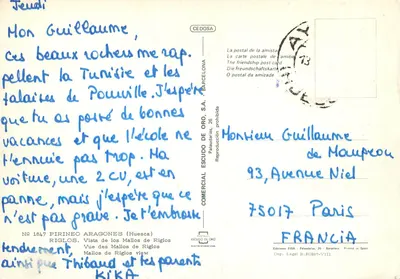 Jeudi
Mon Guillaume,
Ces beaux rochers me rap.
pellent la Tunisie et les
falaises de Pourville. J'espère
que tu as passé de bonnes
vacances et que l'école ne
t'ennuie pas trop. Ma
voiture, une 2 CV, est en
panne, mais j'espère que ce
n'est pas grave. Je t'embrasse
tendrement,
ainsi que Thibaud et tes parents
KIKA
CEDOSA
COMERCIAL ESCUDO DE ORO, S.A.
BARCELONA
Reproducción prohibida
La postal de la amistad
La carte postale de amitié
The friendship post card
Die freundschaftskarte
O postal da amizade
Monsieur Guillaume
de Maupeou
93, Avenue Niel
75017 Paris
FRANCIA
NR 1847 PIRINEO ARAGONES (Huesca)
RIGLOS. Vista de los Mallos de Riglos
Vue des Mallos de Riglos
Mallos de Riglos view
ESCUDO DE ORO